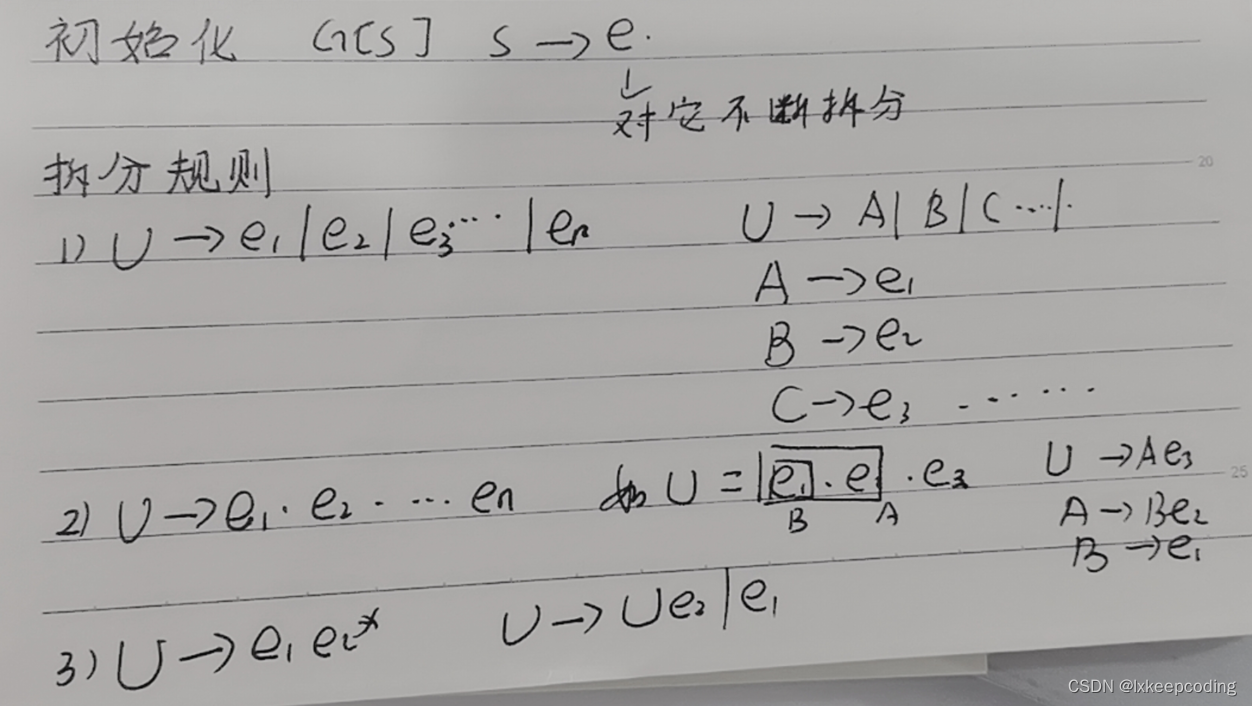 初始化 G[S] S → e.
↓
对它不断拆分
拆分规则
20
1) U → e₁ | e₂ | e₃ ···· | eₙ U → A | B | C ····|·
A → e₁
B → e₂
C → e₃ ·······
2) U → e₁ · e₂ · ··· eₙ 如 U = e₁ · e · e₃ U → Ae₃
25
B A A → Be₂
B → e₁
3) U → e₁ e₂* U → Ue₂ | e₁
CSDN @lxkeepcoding